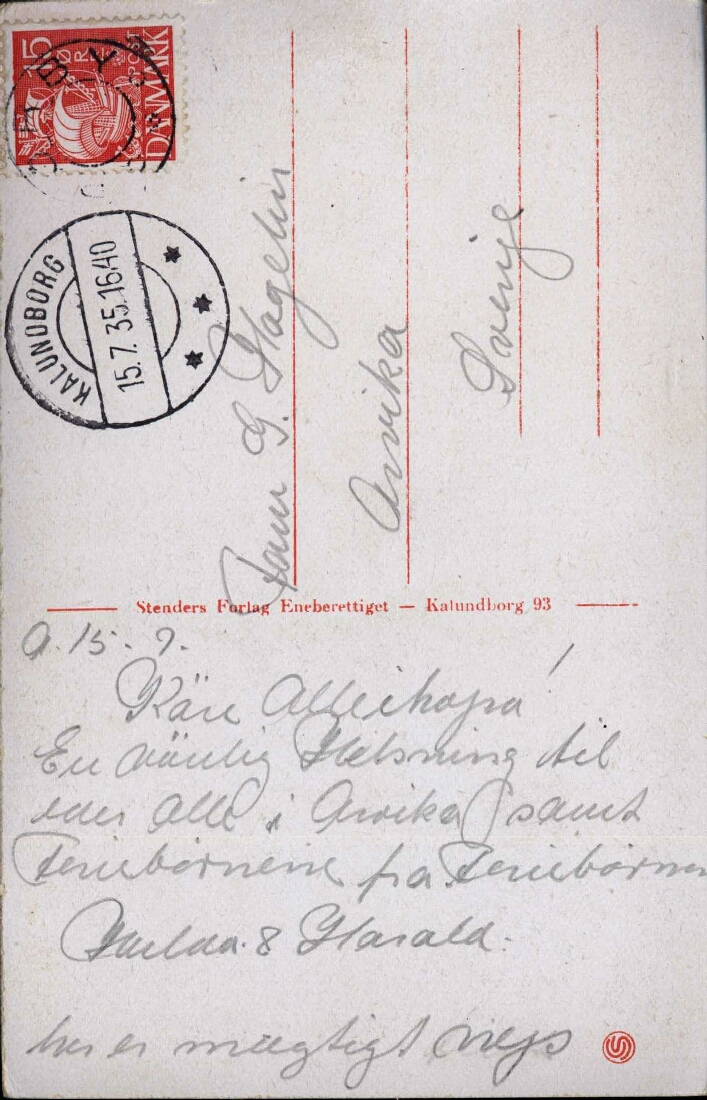 15
ØRE
POST
DANMARK
KALUNDBORG
15.7.35.16.40
Fam G. Hagelin
Arvika
Sverige
Stenders Forlag Eneberettiget — Kalundborg 93
15-7.
Käre Allihopa!
En vänlig Helsning til
eder alle i Arvika samt
Feriebørnene fra Feriebørnen
& Harald.
her er mægtigt